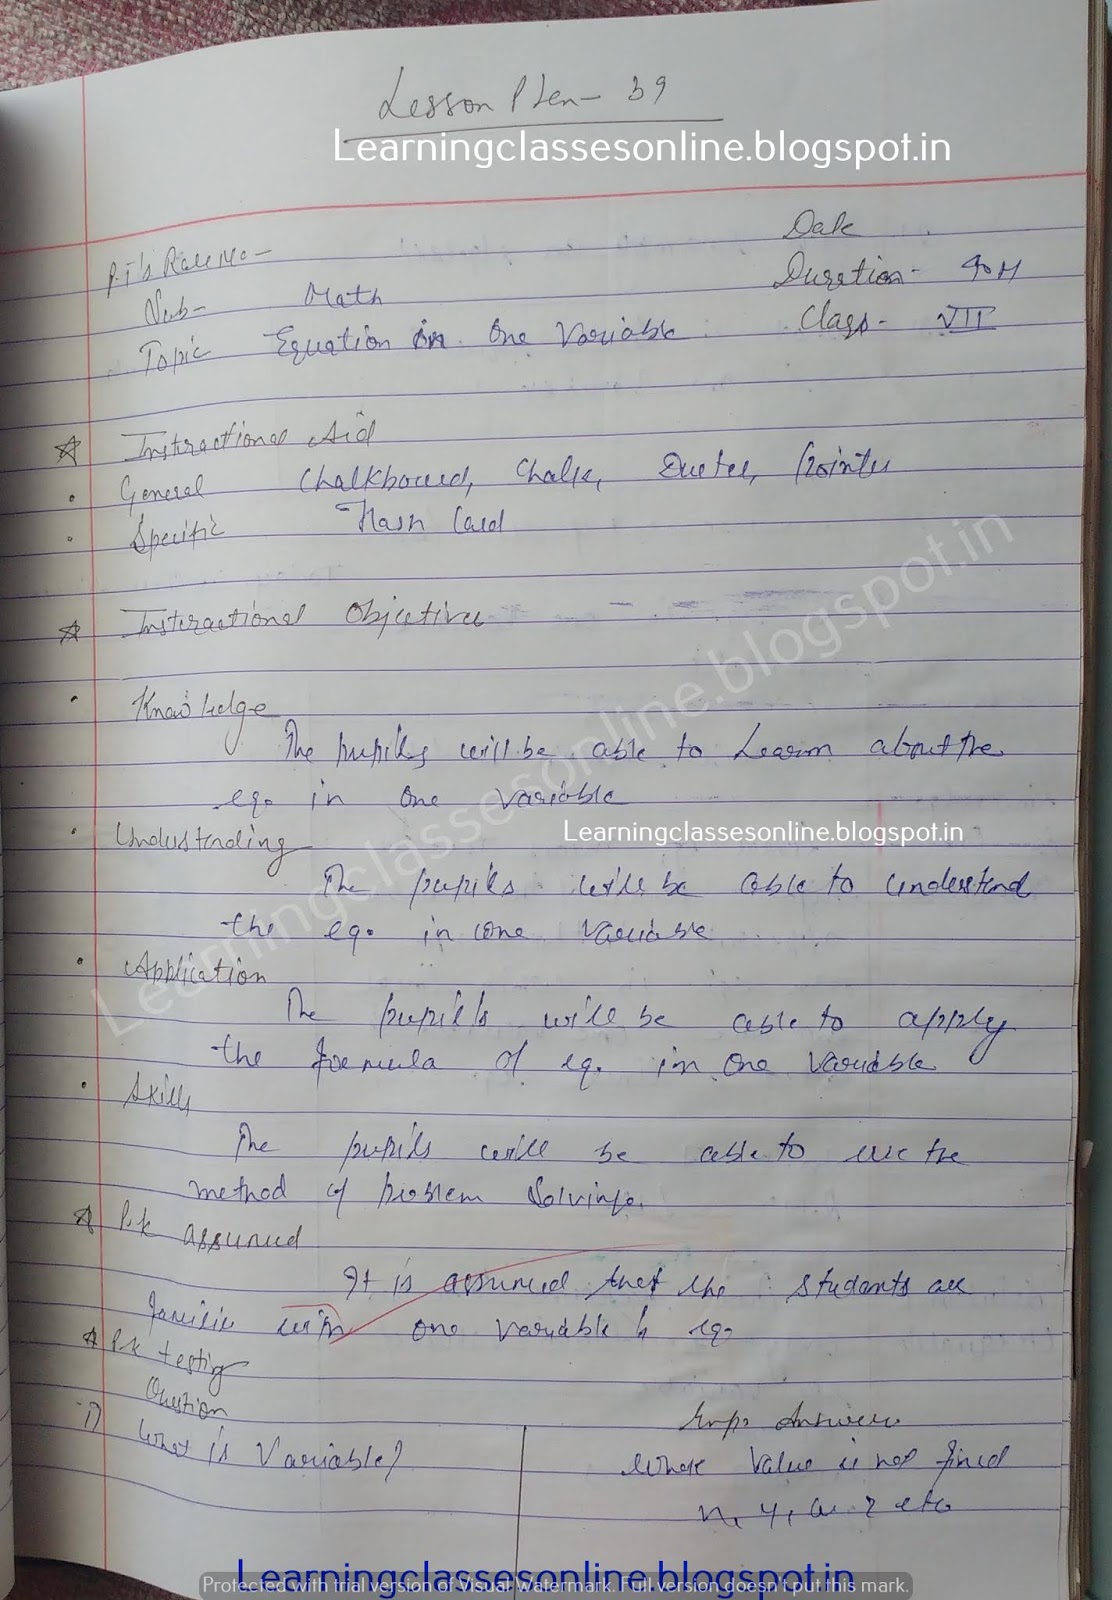 Lesson Plan - 39
Learningclassesonline.blogspot.in
Date
P.T's Roll No -
Duration - 40 M
Sub - Math
Class - VII
Topic Equation in One Variable
Instructional Aid
General Chalkboard, Chalk, Duster, Pointer
Specific Flash Card
Instructional Objective
Knowledge
The pupils will be able to Learn about the
eq. in one variable
Learningclassesonline.blogspot.in
Understanding
The pupils will be able to understand
the eq. in one variable
Application
The pupils will be able to apply
the formula of eq. in one variable
Skills
The pupils will be able to use the
method of problem Solving.
P.K assumed
It is assumed that the students are
familiar with one variable & eq.
P.K testing
Question Exp. Answer
1) What is Variable? Whose value is not fixed
x, y, z etc
Learningclassesonline.blogspot.in
Learningclassesonline.blogspot.in
Protected with trial version of Visual Watermark. Full version doesn't put this mark.